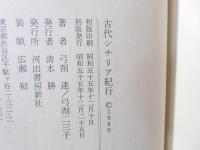 古代シチリア紀行 ©1980
初版印刷 昭和五十五年十二月十日
初版発行 昭和五十五年十二月二十五日
著者 弓削 達／弓削三三子
発行者 清水 勝
発行所 河出書房新社
装幀 広瀬 郁
東京都渋谷区千駄ヶ谷二ー三二ー二